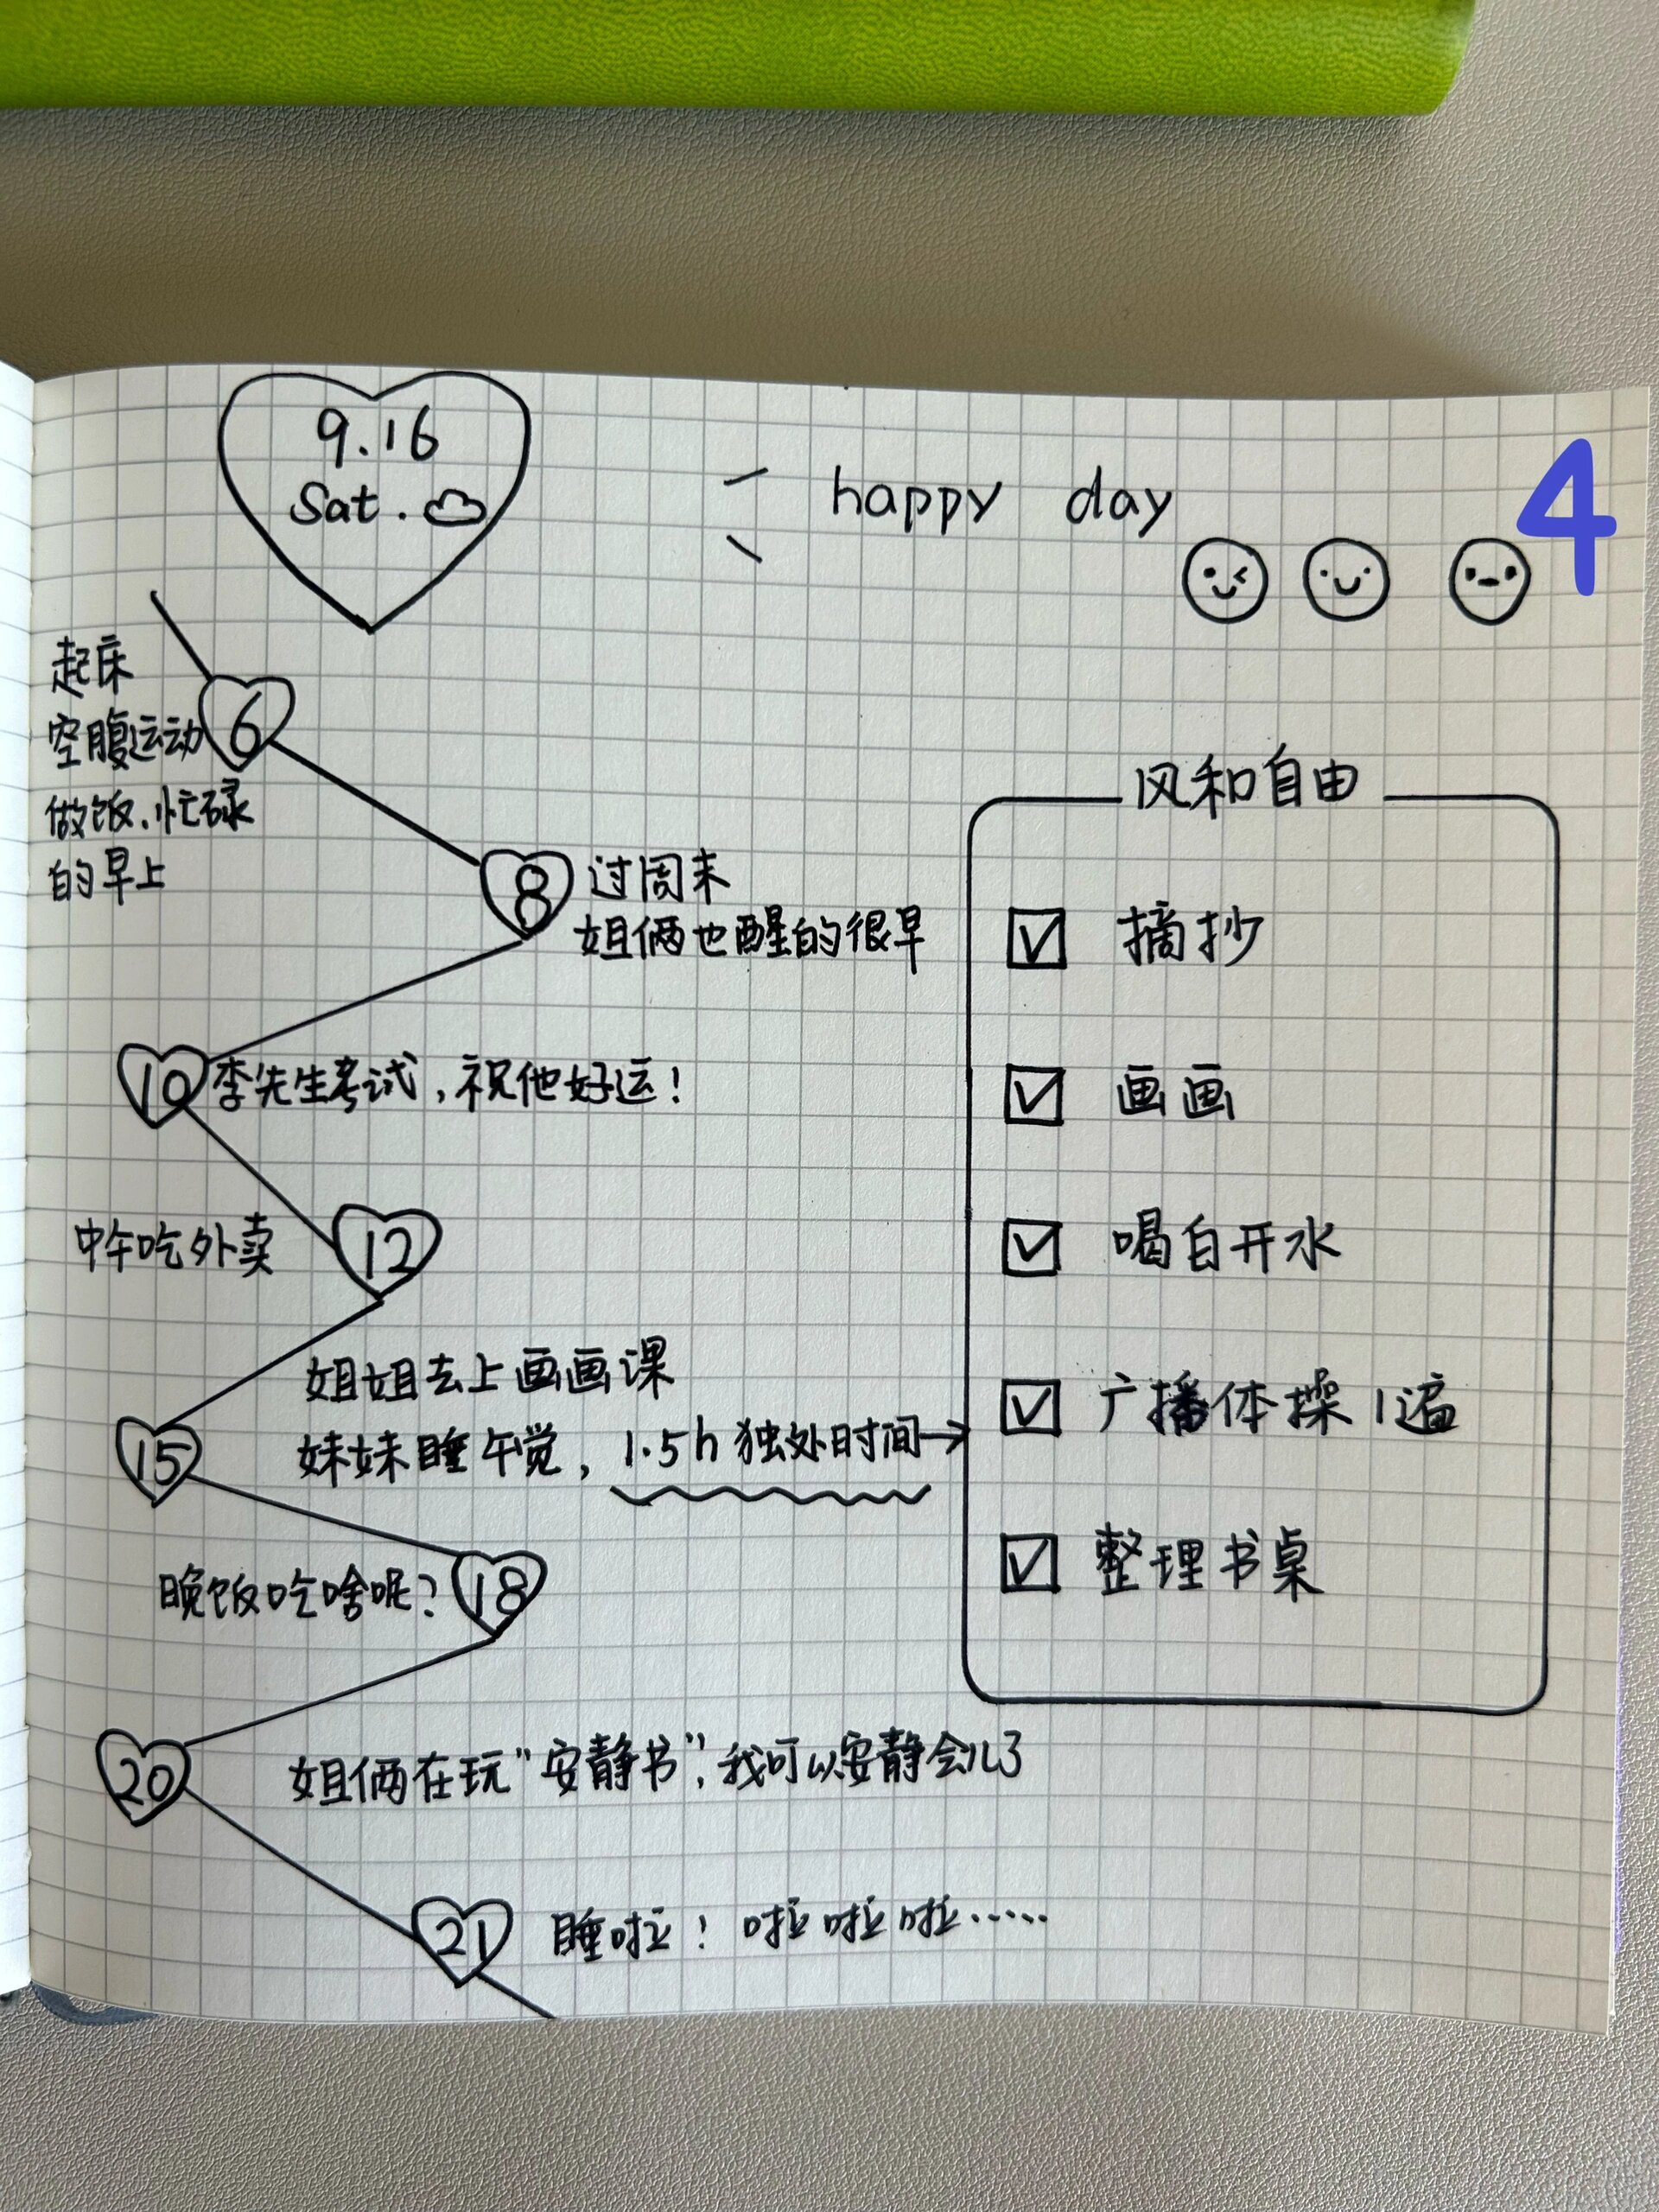 9.16
Sat.
happy day
4
起床
空腹运动
做饭.忙碌
的早上
6
8
过周末
姐俩也醒的很早
10
李先生考试,祝他好运!
中午吃外卖
12
姐姐去上画画课
15
妹妹睡午觉,1.5h独处时间→
晚饭吃啥呢?
18
20
姐俩在玩"安静书",我可以安静会儿了
21
睡啦! 啦啦啦……
风和自由
☑ 摘抄
☑ 画画
☑ 喝白开水
☑ 广播体操1遍
☑ 整理书桌